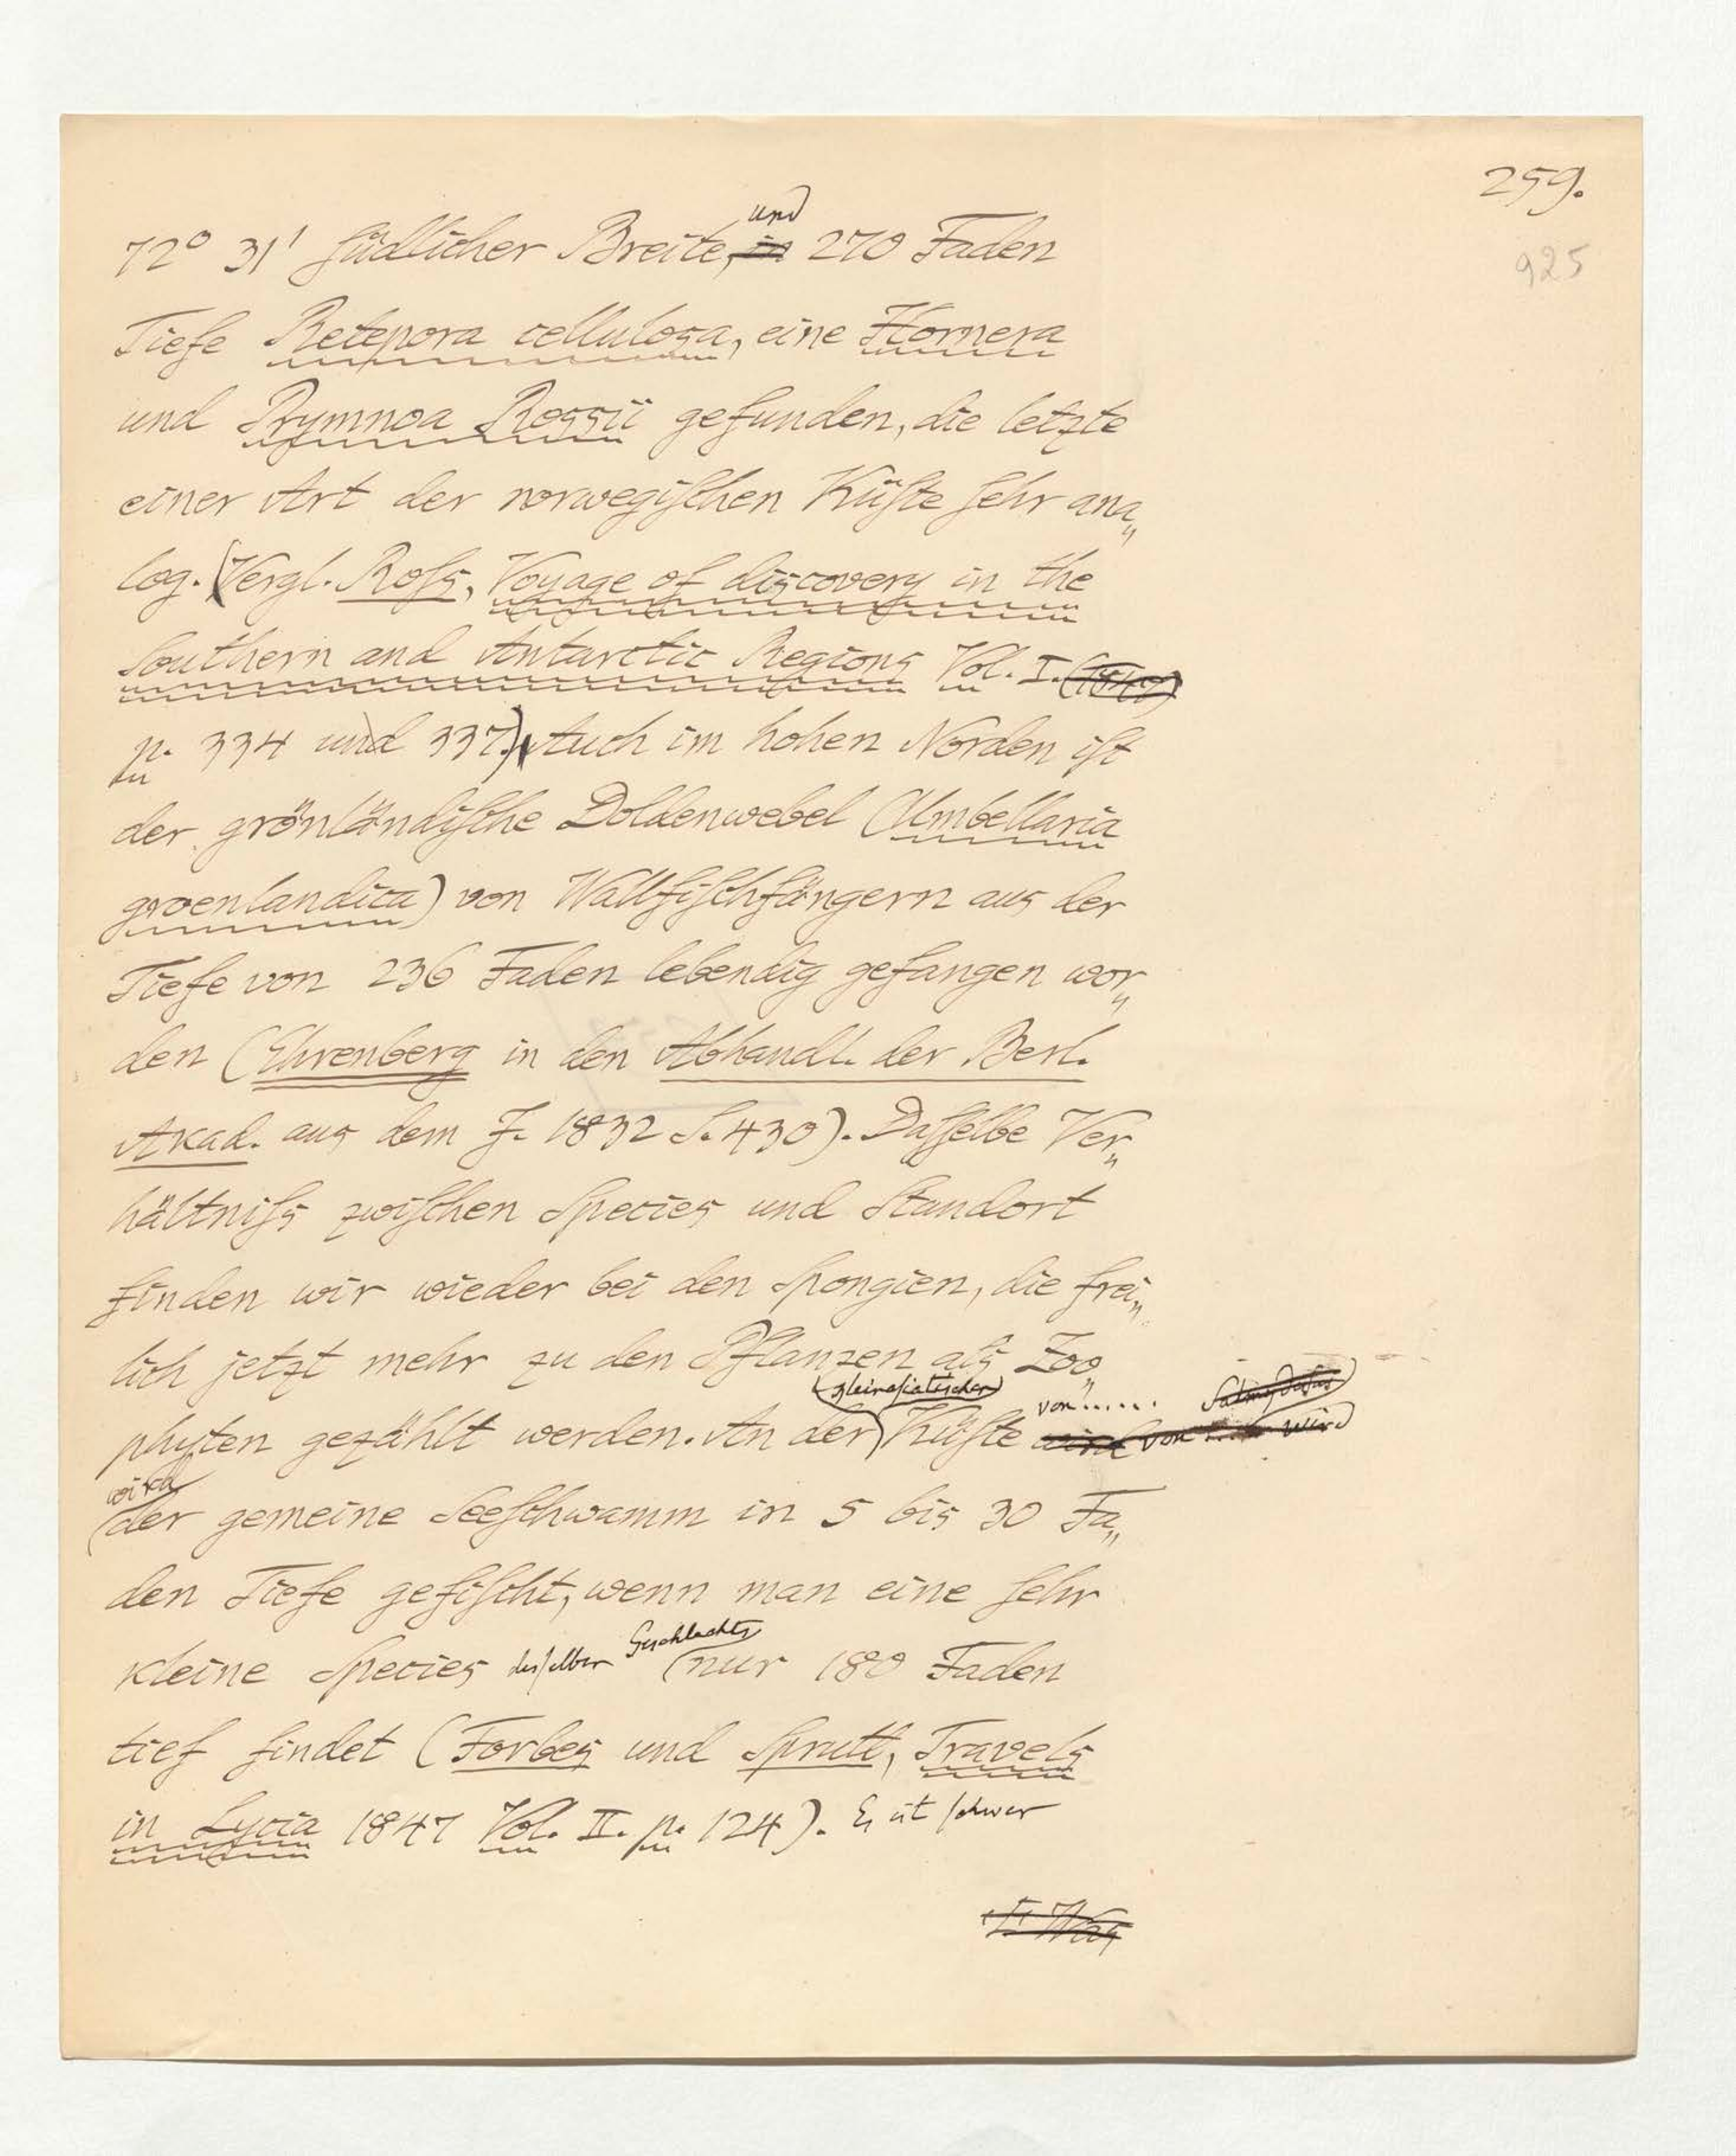 259.
925
und
72° 31' südlicher Breite, in 270 Faden
Tiefe Retepora cellulosa, eine Hornera
und Prymnoa Rossii gefunden, die letzte
einer Art der norwegischen Küste sehr ana„
log. (Vergl. Roſs, Voyage of discovery in the
Southern and Antarctic Regions Vol. I.
p. 334 und 337) Auch im hohen Norden ist
der grönländische Doldenwebel (Umbellaria
groenlandica) von Wallfischfängern aus der
Tiefe von 236 Faden lebendig gefangen wor„
den (Ehrenberg in den Abhandl. der Berl.
Akad. aus dem J. 1832 S. 430). Daſſelbe Ver„
hältniſs zwiſchen Species und Standort
finden wir wieder bei den Spongien, die frei„
lich jetzt mehr zu den Pflanzen als Zoo„
kleinaſiatischen von......
phyten gezählt werden. An der Küſte wird von .... wird
wird
der gemeine Seeſchwamm in 5 bis 30 Fa„
den Tiefe gefiſcht, wenn man eine ſehr
Geschlechts
kleine Species deſſelben nur 180 Faden
tief findet (Forbes und Spratt, Travels
in Lycia 1847 Vol. II. p. 124). Es ist ſchwer
Was